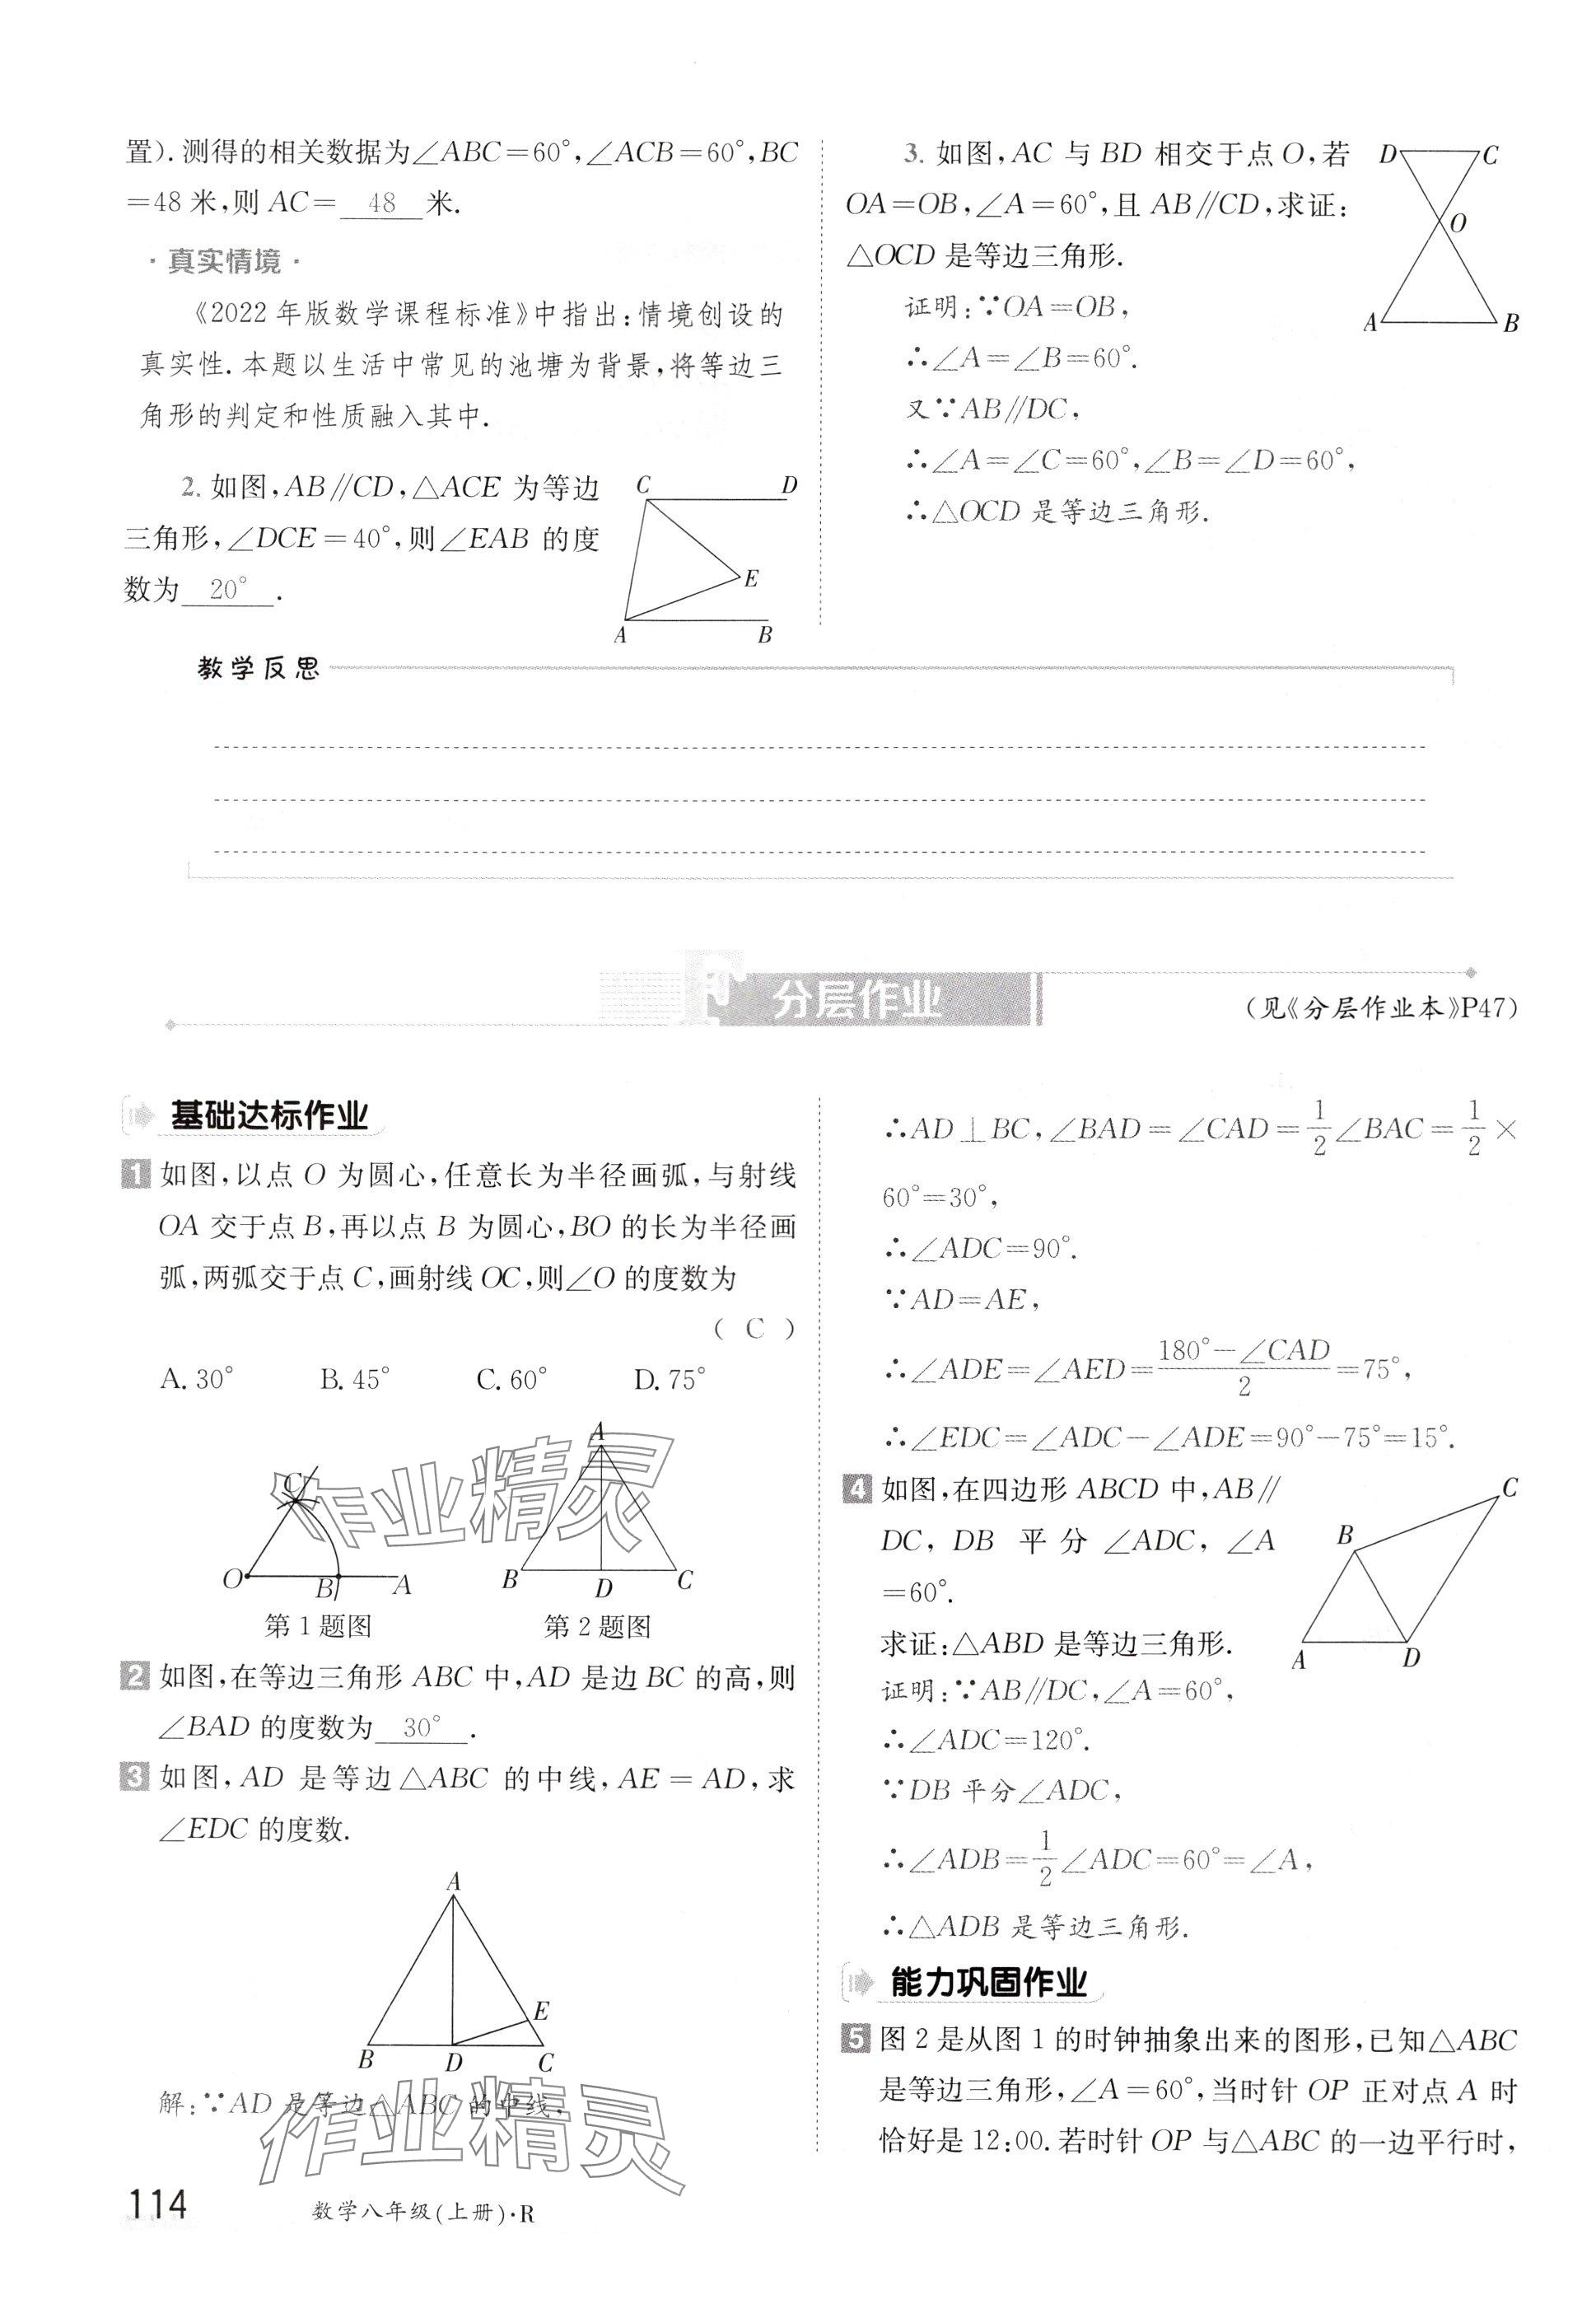 置).测得的相关数据为∠ABC=60°,∠ACB=60°,BC
=48米,则AC= 48 米.
·真实情境·
《2022年版数学课程标准》中指出:情境创设的
真实性.本题以生活中常见的池塘为背景,将等边三
角形的判定和性质融入其中.
2. 如图,AB∥CD,△ACE 为等边
三角形,∠DCE=40°,则∠EAB 的度
数为 20° .
C D
E
A B
3. 如图,AC 与 BD 相交于点 O,若
OA=OB,∠A=60°,且 AB∥CD,求证:
△OCD 是等边三角形.
证明:∵OA=OB,
∴∠A=∠B=60°.
又∵AB∥DC,
∴∠A=∠C=60°,∠B=∠D=60°,
∴△OCD 是等边三角形.
D C
O
A B
教学反思
分层作业
(见《分层作业本》P47)
基础达标作业
1 如图,以点 O 为圆心,任意长为半径画弧,与射线
OA 交于点 B,再以点 B 为圆心,BO 的长为半径画
弧,两弧交于点 C,画射线 OC,则∠O 的度数为
( C )
A. 30° B. 45° C. 60° D. 75°
C
O B A
第1题图
A
B D C
第2题图
作业精灵
2 如图,在等边三角形 ABC 中,AD 是边 BC 的高,则
∠BAD 的度数为 30° .
3 如图,AD 是等边△ABC 的中线,AE=AD,求
∠EDC 的度数.
A
E
B D C
解:∵AD 是等边△ABC 的中线,
作业精灵
∴AD⊥BC,∠BAD=∠CAD=1/2∠BAC=1/2×
60°=30°,
∴∠ADC=90°.
∵AD=AE,
∴∠ADE=∠AED=(180°-∠CAD)/2=75°,
∴∠EDC=∠ADC-∠ADE=90°-75°=15°.
4 如图,在四边形 ABCD 中,AB∥
DC, DB 平分 ∠ADC, ∠A
=60°.
求证:△ABD 是等边三角形.
C
B
A D
证明:∵AB∥DC,∠A=60°,
∴∠ADC=120°.
∵DB 平分∠ADC,
∴∠ADB=1/2∠ADC=60°=∠A,
∴△ADB 是等边三角形.
能力巩固作业
5 图2是从图1的时钟抽象出来的图形,已知△ABC
是等边三角形,∠A=60°,当时针 OP 正对点 A 时
恰好是12:00.若时针 OP 与△ABC 的一边平行时,
114 数学八年级(上册)·R